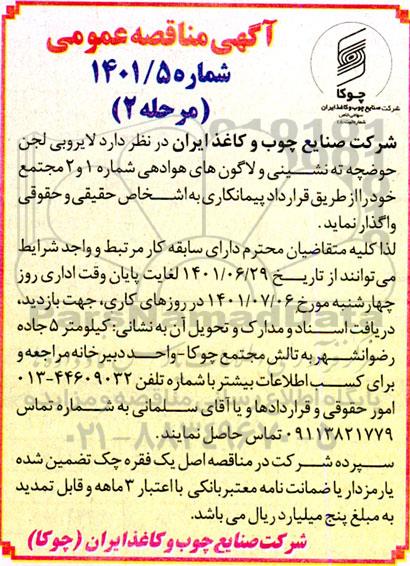 آگهی مناقصه عمومی
شماره ۱۴۰۱/۵
(مرحله ۲)
چوکا
شرکت صنایع چوب و کاغذ ایران
سهامی خاص
شرکت صنایع چوب و کاغذ ایران در نظر دارد لایروبی لجن
حوضچه ته نشینی و لاگون های هوادهی شماره ۱ و ۲ مجتمع
خود را از طریق قرارداد پیمانکاری به اشخاص حقیقی و حقوقی
واگذار نماید.
لذا کلیه متقاضیان محترم دارای سابقه کار مرتبط و واجد شرایط
می توانند از تاریخ ۱۴۰۱/۰۶/۲۹ لغایت پایان وقت اداری روز
چهارشنبه مورخ ۱۴۰۱/۰۷/۰۶ در روزهای کاری، جهت بازدید،
دریافت اسناد و مدارک و تحویل آن به نشانی: کیلومتر ۵ جاده
رضوانشهر به تالش مجتمع چوکا - واحد دبیرخانه مراجعه و
برای کسب اطلاعات بیشتر با شماره تلفن ۴۴۶۰۹۰۳۲-۰۱۳
امور حقوقی و قراردادها و یا آقای سلمانی به شماره تماس
۰۹۱۱۳۸۲۱۷۷۹ تماس حاصل نمایند.
سپرده شرکت در مناقصه اصل یک فقره چک تضمین شده
یا رمزدار یا ضمانت نامه معتبر بانکی با اعتبار ۳ ماهه و قابل تمدید
به مبلغ پنج میلیارد ریال می باشد.
شرکت صنایع چوب و کاغذ ایران (چوکا)